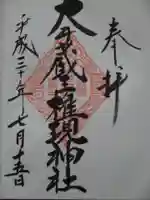 奉拝
大 蔵王権現神社
平成三十年七月十五日